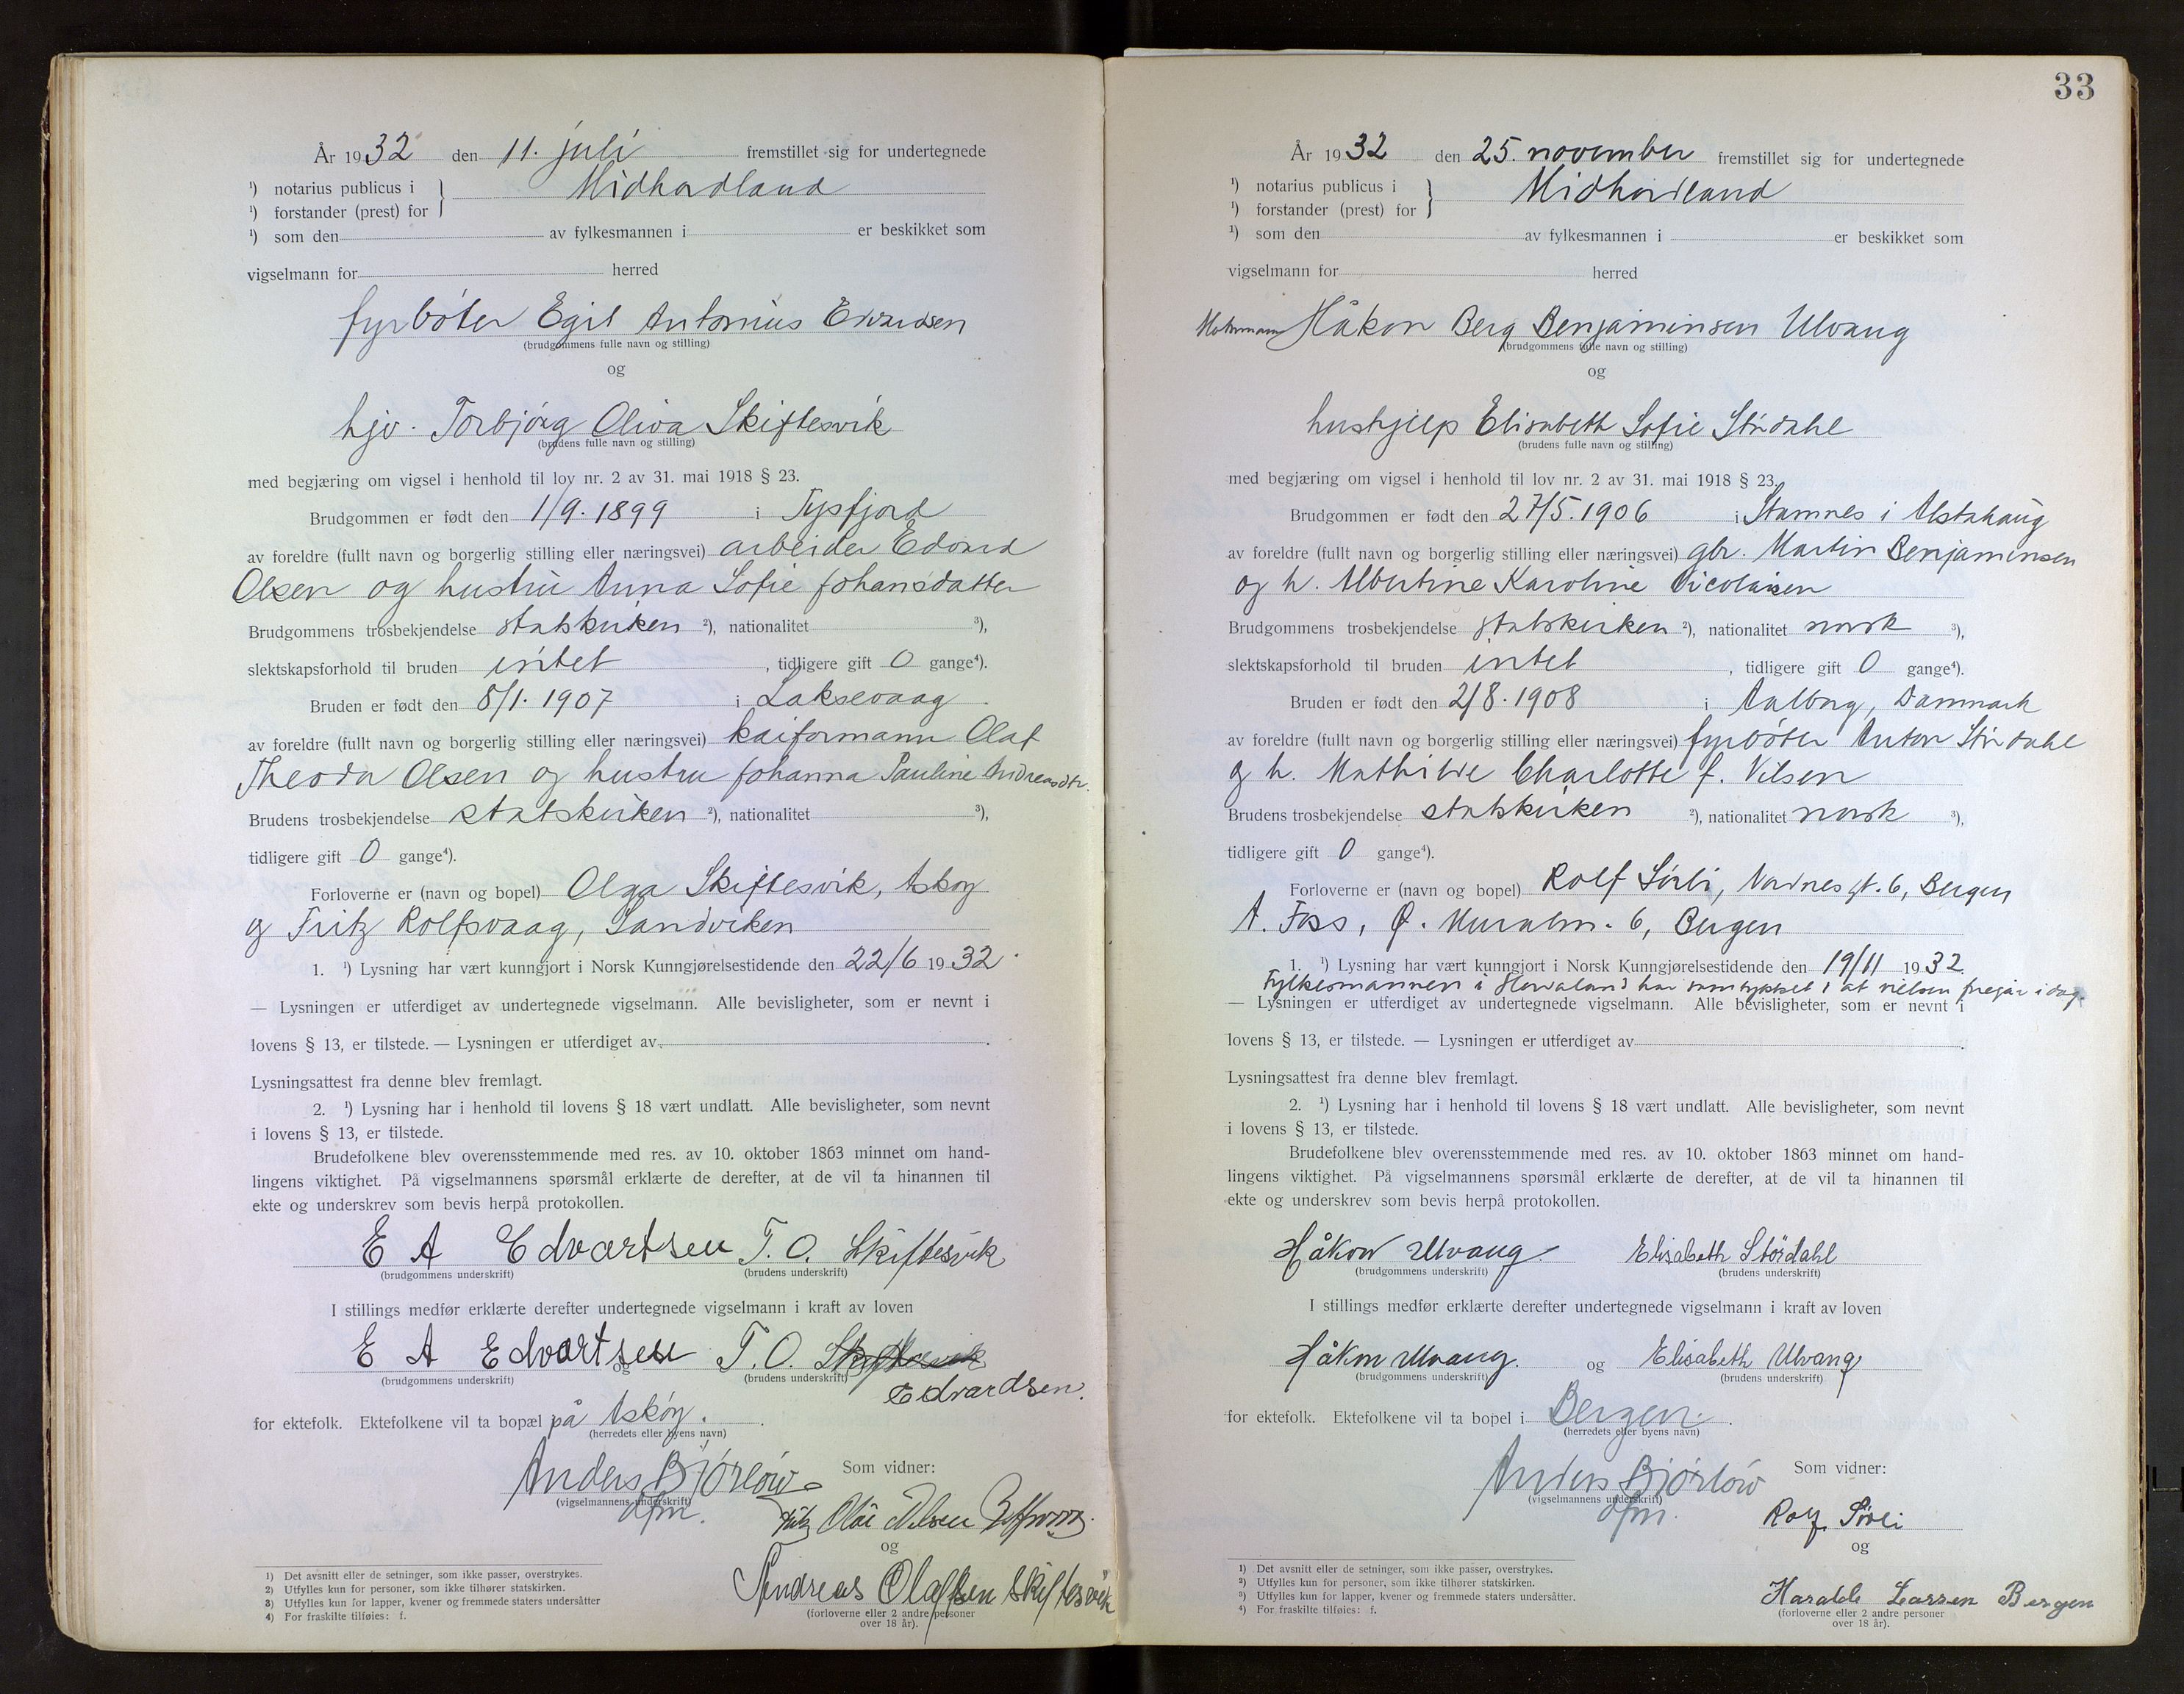 År 1932 den 11. juli fremstillet sig for undertegnede
¹) notarius publicus i } Midhordland
¹) forstander (prest) for
¹) som den av fylkesmannen i er beskikket som
vigselmann for herred
fyrbøter Egil Antonius Edvardsen
(brudgommens fulle navn og stilling)
og
hjv. Torbjörg Oliva Skiftesvik
(brudens fulle navn og stilling)
med begjæring om vigsel i henhold til lov nr. 2 av 31. mai 1918 § 23.
Brudgommen er født den 1/9. 1899 i Tysfjord
av foreldre (fullt navn og borgerlig stilling eller næringsvei) arbeider Edvard
Olsen og hustru Anna Sofie Johansdatter
Brudgommens trosbekjendelse statskirken ²), nationalitet ³),
slektskapsforhold til bruden intet, tidligere gift 0 gange⁴).
Bruden er født den 8/1. 1907 i Laksevaag
av foreldre (fullt navn og borgerlig stilling eller næringsvei) kaiformann Olaf
Theodor Olsen og hustru Johanna Pauline Andreasdtr.
Brudens trosbekjendelse statskirken ²), nationalitet ³),
tidligere gift 0 gange⁴).
Forloverne er (navn og bopel) Olga Skiftesvik, Askøy
og Fritz Rolfsvaag, Sandviken
1. ¹) Lysning har vært kunngjort i Norsk Kunngjørelsestidende den 22/6 1932.
— Lysningen er utferdiget av undertegnede vigselmann. Alle bevisligheter, som er nevnt i
lovens § 13, er tilstede. — Lysningen er utferdiget av .
Lysningsattest fra denne blev fremlagt.
2. ¹) Lysning har i henhold til lovens § 18 vært undlatt. Alle bevisligheter, som nevnt
i lovens § 13, er tilstede.
Brudefolkene blev overensstemmende med res. av 10. oktober 1863 minnet om hand-
lingens viktighet. På vigselmannens spørsmål erklærte de derefter, at de vil ta hinannen til
ekte og underskrev som bevis herpå protokollen.
E A Edvartsen T. O. Skiftesvik
(brudgommens underskrift) (brudens underskrift)
I stillings medfør erklærte derefter undertegnede vigselmann i kraft av loven
E A Edvartsen og T. O. Skiftesvik
(brudgommens underskrift) (brudens underskrift)
Edvardsen.
for ektefolk. Ektefolkene vil ta bopæl på Askøy.
(herredets eller byens navn)
Anders Bjørlow Som vidner:
(vigselmannens underskrift)
dfm.
Fritz
og
Andreas Olafsen Skiftesvik
(forloverne eller 2 andre personer
over 18 år).
1) Det avsnitt eller de setninger, som ikke passer, overstrykes.
2) Utfylles kun for personer, som ikke tilhører statskirken.
3) Utfylles kun for lapper, kvener og fremmede staters undersåtter
4) For fraskilte tilføies: f.
33
År 1932 den 25. november fremstillet sig for undertegnede
¹) notarius publicus i } Midhordland
¹) forstander (prest) for
¹) som den av fylkesmannen i er beskikket som
vigselmann for herred
Håkon Berg Benjaminsen Ulvang
(brudgommens fulle navn og stilling)
og
hushjelp Elisabeth Sofie Stördahl
(brudens fulle navn og stilling)
med begjæring om vigsel i henhold til lov nr. 2 av 31. mai 1918 § 23.
Brudgommen er født den 27/5. 1906 i Stamnes i Alstahaug
av foreldre (fullt navn og borgerlig stilling eller næringsvei) gbr. Martin Benjaminsen
og h. Albertine Karoline Nicolaisen
Brudgommens trosbekjendelse statskirken ²), nationalitet norsk ³),
slektskapsforhold til bruden intet, tidligere gift 0 gange⁴).
Bruden er født den 2/8. 1908 i Aalborg, Danmark
av foreldre (fullt navn og borgerlig stilling eller næringsvei) fyrbøter Anton Stördahl
og h. Mathilde Charlotte f. Nilsen
Brudens trosbekjendelse statskirken ²), nationalitet norsk ³),
tidligere gift 0 gange⁴).
Forloverne er (navn og bopel) Rolf Sörli, Nordnesgt. 6, Bergen
A. Foss, Ø. Muralm. 6, Bergen
1. ¹) Lysning har vært kunngjort i Norsk Kunngjørelsestidende den 19/11 1932.
Fylkesmannen i Hordaland har samtykket i at vielsen foregår i dag.
— Lysningen er utferdiget av undertegnede vigselmann. Alle bevisligheter, som er nevnt i
lovens § 13, er tilstede. — Lysningen er utferdiget av .
Lysningsattest fra denne blev fremlagt.
2. ¹) Lysning har i henhold til lovens § 18 vært undlatt. Alle bevisligheter, som nevnt
i lovens § 13, er tilstede.
Brudefolkene blev overensstemmende med res. av 10. oktober 1863 minnet om hand-
lingens viktighet. På vigselmannens spørsmål erklærte de derefter, at de vil ta hinannen til
ekte og underskrev som bevis herpå protokollen.
Håkon Ulvang Elisabeth Stördahl
(brudgommens underskrift) (brudens underskrift)
I stillings medfør erklærte derefter undertegnede vigselmann i kraft av loven
Håkon Ulvang. og Elisabeth Ulvang
(brudgommens underskrift) (brudens underskrift)
for ektefolk. Ektefolkene vil ta bopel i Bergen.
(herredets eller byens navn)
Anders Bjørlow Som vidner:
(vigselmannens underskrift)
dfm.
Rolf Sörli
og
Haralde Larsen Bergen
(forloverne eller 2 andre personer
over 18 år).
1) Det avsnitt eller de setninger, som ikke passer, overstrykes.
2) Utfylles kun for personer, som ikke tilhører statskirken.
3) Utfylles kun for lapper, kvener og fremmede staters undersåtter.
4) For fraskilte tilføies: f.